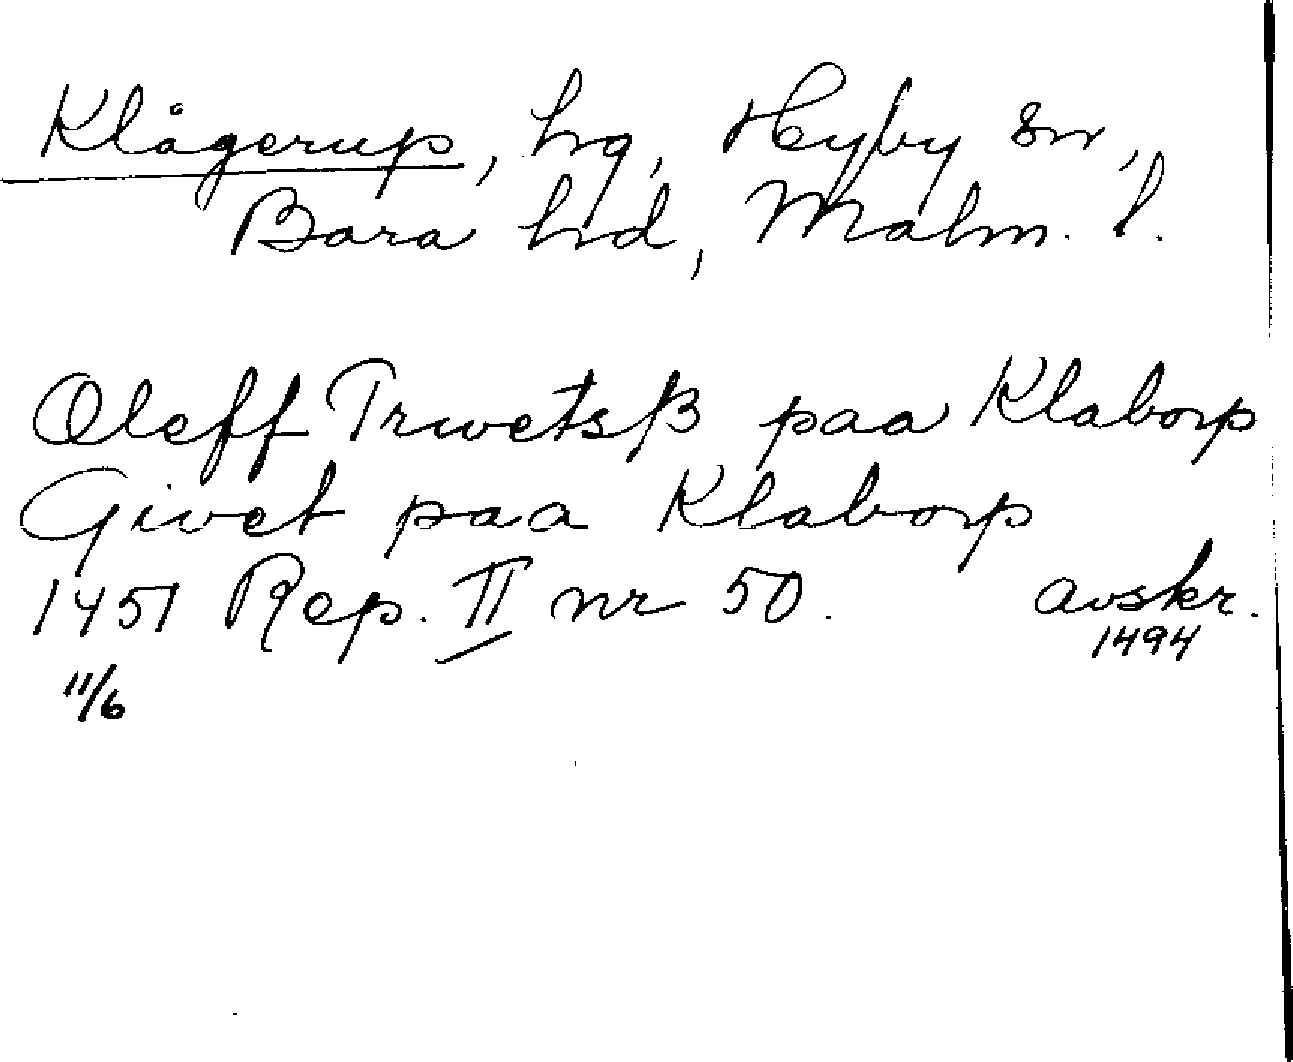 Klågerup, hg, Hyby sn,
Bara hd, Malm. l.
Oleff Trwetsß paa Klaborp
Givet paa Klaborp
1451 Rep. II nr 50. avskr.
11/6 1494